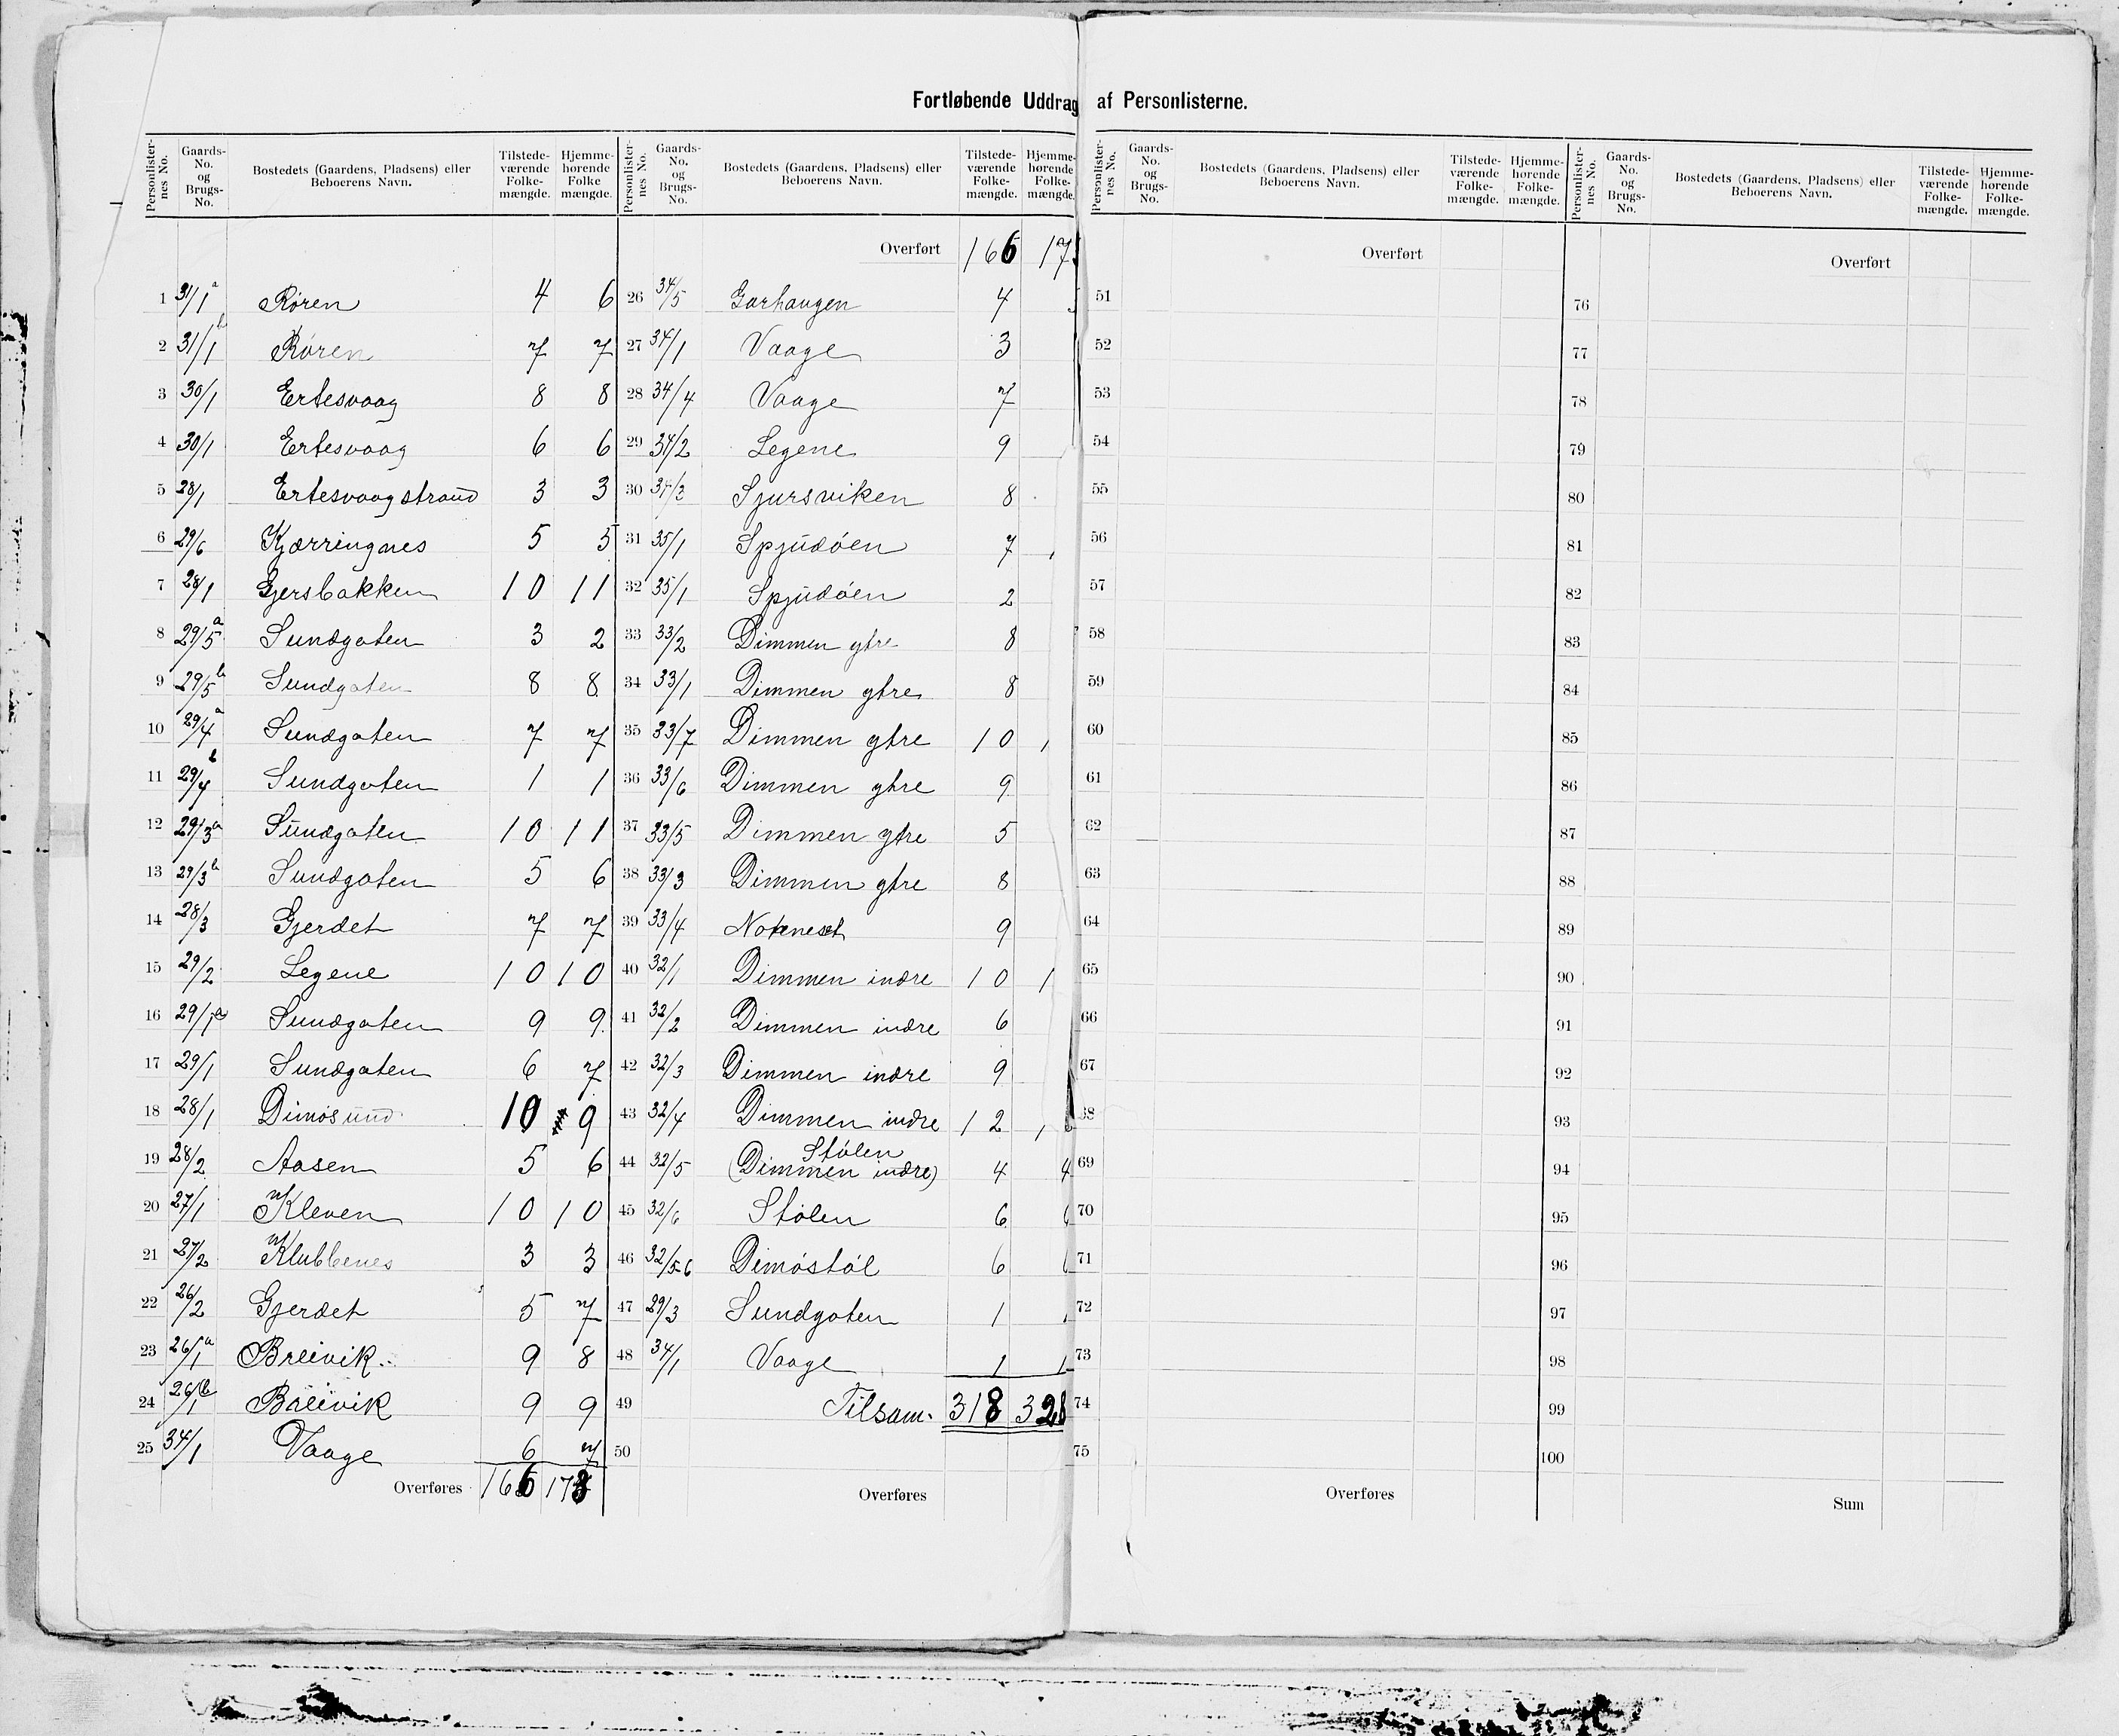 Fortløbende Uddrag af Personlisterne.
Personlister-nes No. Gaards-No. og Brugs-No. Bostedets (Gaardens, Pladsens) eller Beboerens Navn. Tilstede-værende Folke-mængde. Hjemme-hørende Folke mængde.
1 31/1 a Røren 4 6
2 31/1 b Røren 7 7
3 30/1 Ertesvaag 8 8
4 30/1 Ertesvaag 6 6
5 28/1 Ertesvaagstrand 3 3
6 29/6 Kjærringnes 5 5
7 28/1 Gjersbakken 10 11
8 29/5 a Sundgaten 3 2
9 29/5 b Sundgaten 8 8
10 29/4 a Sundgaten 7 7
11 29/4 b Sundgaten 1 1
12 29/3 a Sundgaten 10 11
13 29/3 b Sundgaten 5 6
14 28/3 Gjerdet 7 7
15 29/2 Legene 10 10
16 29/1 a Sundgaten 9 9
17 29/1 Sundgaten 6 7
18 28/1 Dimøsund 10 9
19 28/2 Aasen 5 6
20 27/1 Kleven 10 10
21 27/2 Klubbenes 3 3
22 26/2 Gjerdet 5 7
23 26/1 a Breivik 9 8
24 26/1 b Breivik 9 9
25 34/1 Vaage 6 7
Overføres 166 173
Personlister-nes No. Gaards-No. og Brugs-No. Bostedets (Gaardens, Pladsens) eller Beboerens Navn. Tilstede-værende Folke-mængde. Hjemme-hørende Folke-mængde.
Overført 166 17
26 34/5 Garhaugen 4
27 34/1 Vaage 3
28 34/4 Vaage 7
29 34/2 Legene 9
30 34/3 Sjursviken 8
31 35/1 Spjudøen 7
32 35/1 Spjudøen 2
33 33/2 Dimmen ytre 8
34 33/1 Dimmen ytre 8
35 33/7 Dimmen ytre 10
36 33/6 Dimmen ytre 9
37 33/5 Dimmen ytre 5
38 33/3 Dimmen ytre 8
39 33/4 Notneset 9
40 32/1 Dimmen indre 10 1
41 32/2 Dimmen indre 6
42 32/3 Dimmen indre 9
43 32/4 Dimmen indre 12
Stølen
44 32/5 (Dimmen indre) 4 4
45 32/6 Stølen 6
46 32/5-6 Dimøstøl 6
47 29/3 Sundgaten 1
48 34/1 Vaage 1 1
49 Tilsam. 318 328
50
Overføres
Personlister-nes No. Gaards-No. og Brugs-No. Bostedets (Gaardens, Pladsens) eller Beboerens Navn. Tilstede-værende Folke-mængde. Hjemme-hørende Folke-mængde.
Overført
51
52
53
54
55
56
57
58
59
60
61
62
63
64
65
66
67
68
69
70
71
72
73
74
75
Overføres
Personlister-nes No. Gaards-No. og Brugs-No. Bostedets (Gaardens, Pladsens) eller Beboerens Navn. Tilstede-værende Folke-mængde. Hjemme-hørende Folke-mængde.
Overført
76
77
78
79
80
81
82
83
84
85
86
87
88
89
90
91
92
93
94
95
96
97
98
99
100
Sum